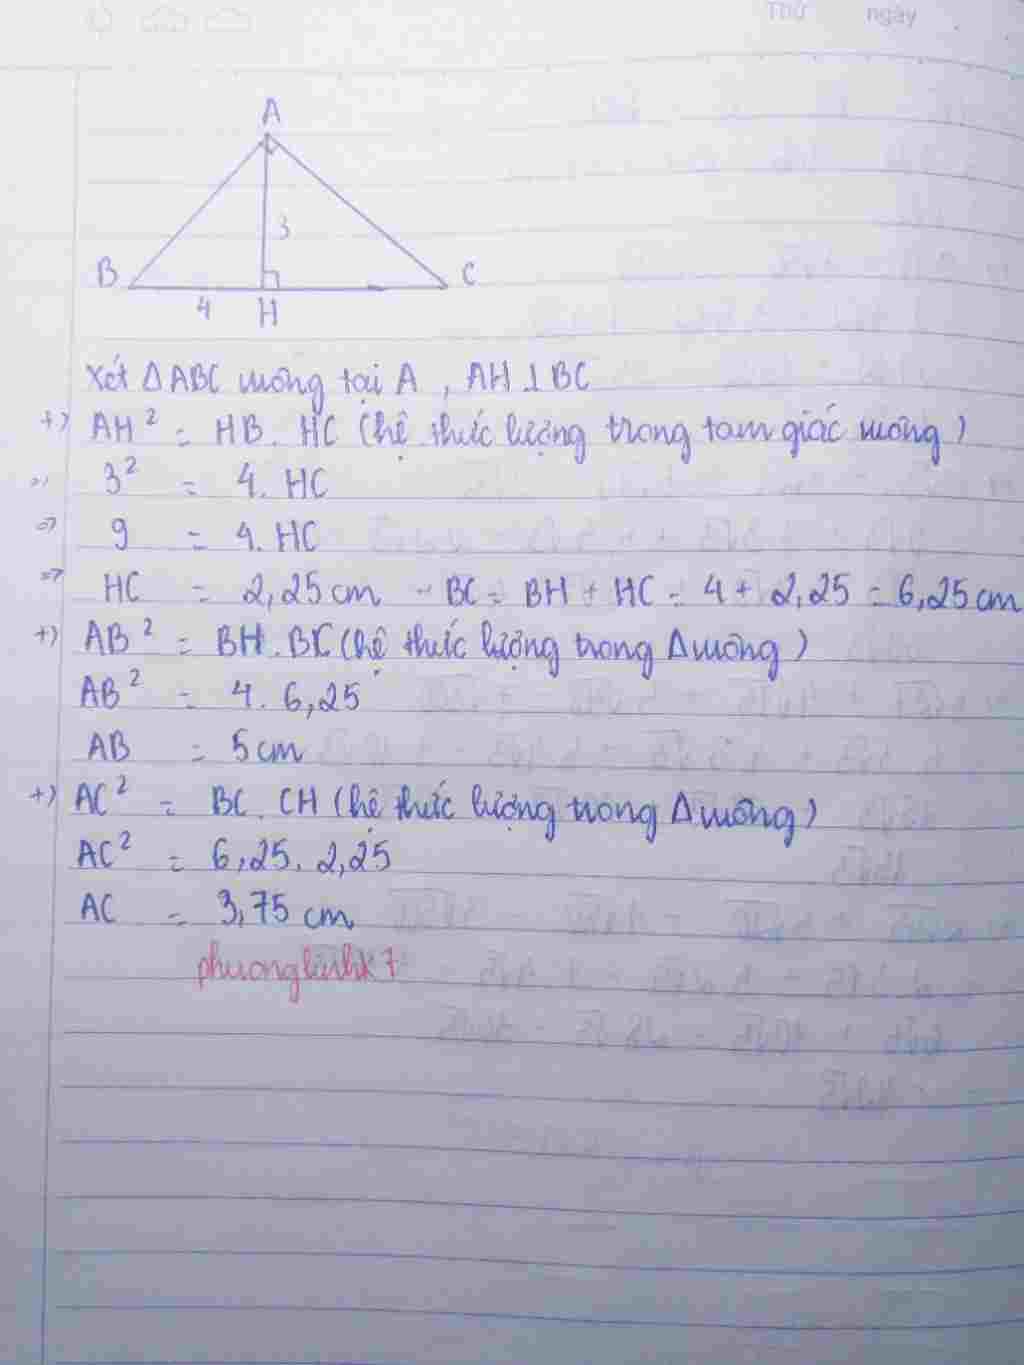 Thứ ngày
A
3
B C
4 H
Xét ΔABC vuông tại A , AH ⊥ BC
+) AH² = HB . HC (hệ thức lượng trong tam giác vuông)
=> 3² = 4. HC
=> 9 = 4. HC
=> HC = 2,25 cm - BC = BH + HC = 4 + 2,25 = 6,25 cm
+) AB² = BH . BC (hệ thức lượng trong Δ vuông)
AB² = 4. 6,25
AB = 5 cm
+) AC² = BC . CH (hệ thức lượng trong Δ vuông)
AC² = 6,25. 2,25
AC = 3,75 cm